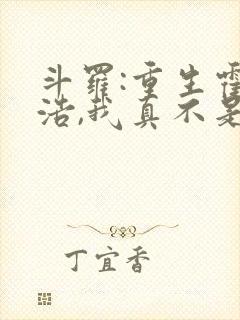 斗羅:重生
浩,我真不是
丁宜香